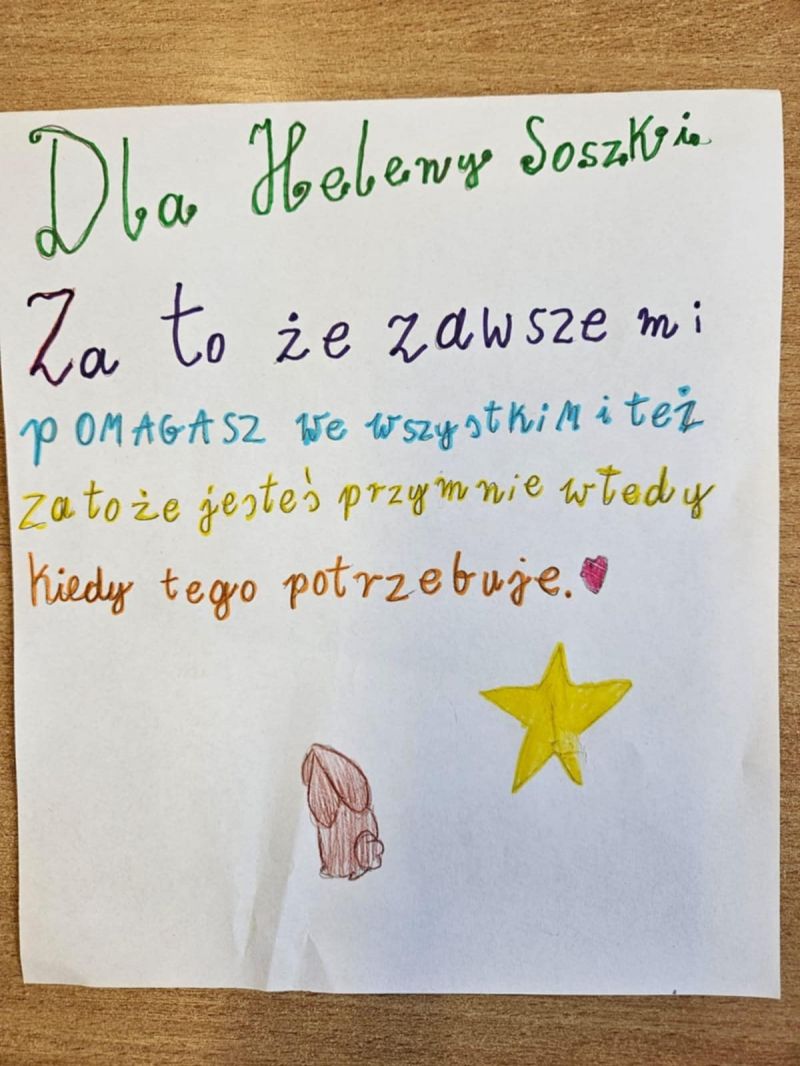 Dla Heleny Soszki
Za to że zawsze mi
pOMAGASZ we wszystkiM i też
za to że jesteś przymnie wtedy
kiedy tego potrzebuje.